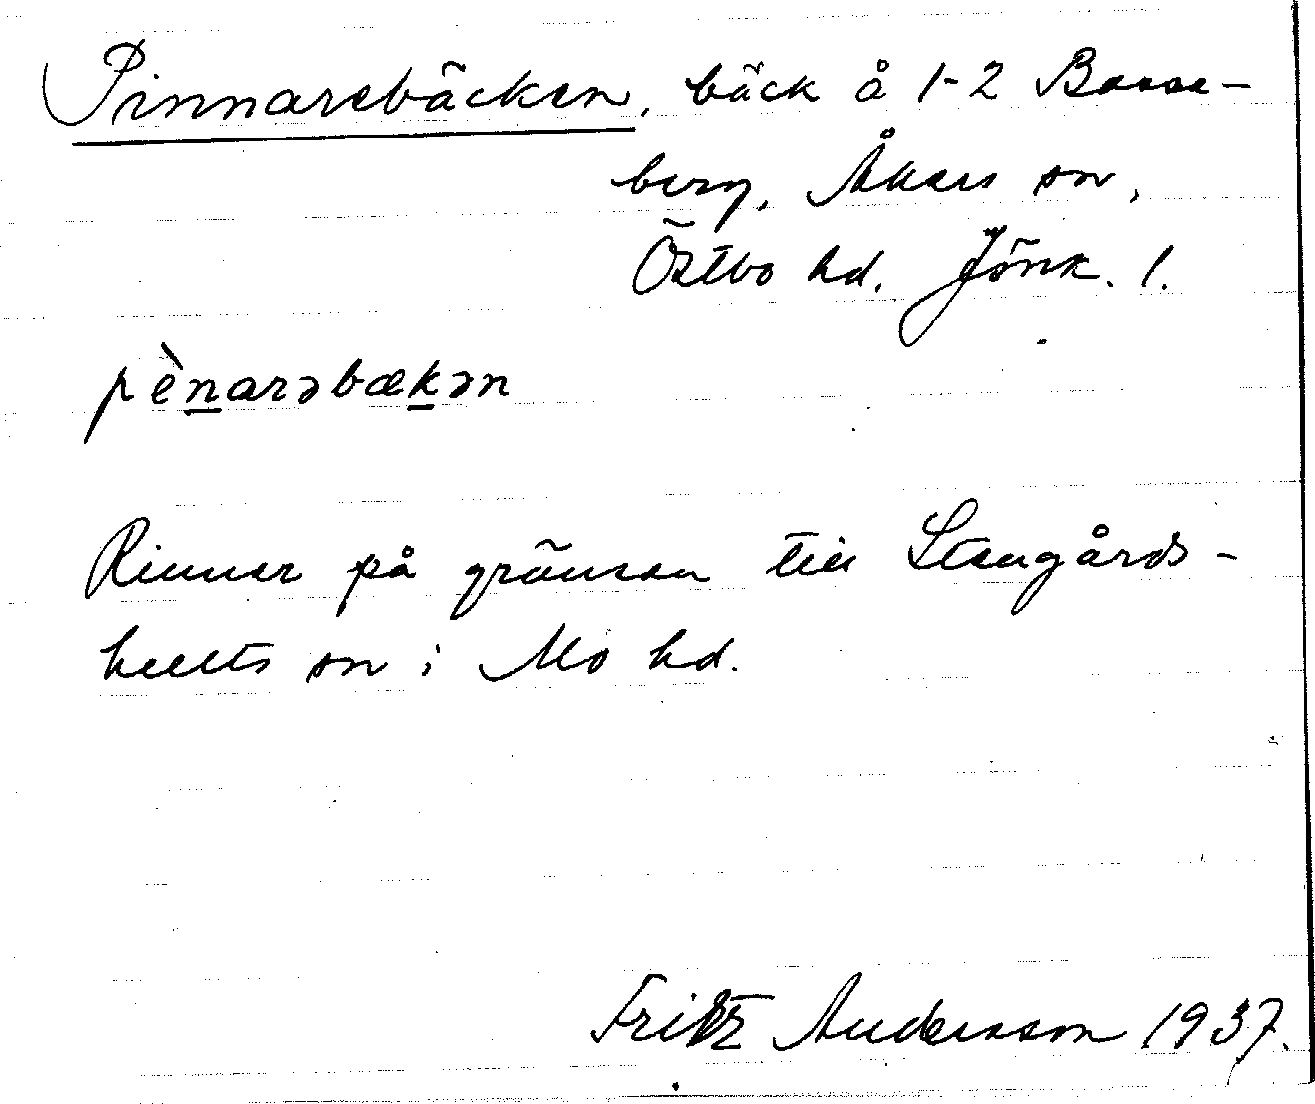 Pinnarebäcken, bäck å 1-2 Basse-
berg, Åkers sn,
Östbo hd. Jönk. l.
pènarəbækən
Rinner på gränsen till Stengårds-
hults sn i Mo hd.
Fritz Andersson 1937.